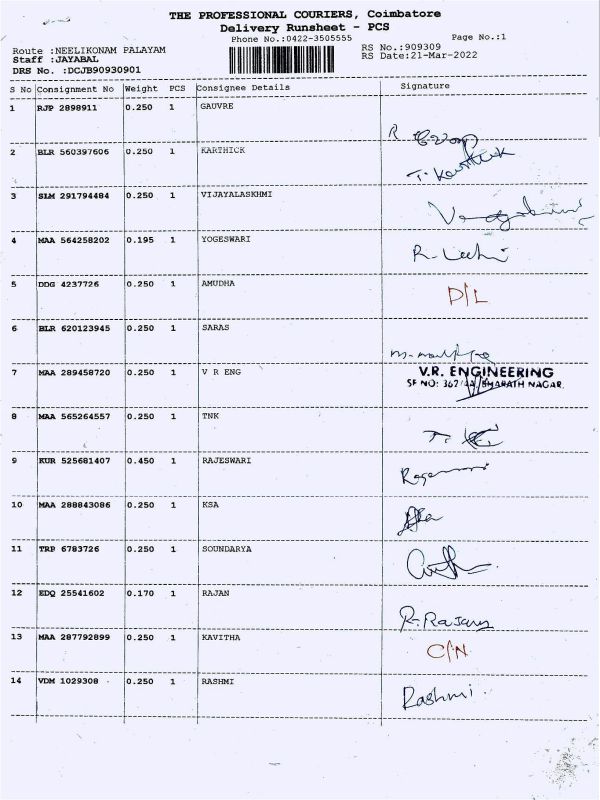 THE PROFESSIONAL COURIERS, Coimbatore
Delivery Runsheet - PCS
Phone No.:0422-3505555
Page No.:1
Route :NEELIKONAM PALAYAM
RS No.:909309
Staff :JAYABAL
RS Date:21-Mar-2022
DRS No. :DCJB90930901
S No Consignment No Weight PCS Consignee Details Signature
1 RJP 2898911 0.250 1 GAUVRE R
2 BLR 560397606 0.250 1 KARTHICK T. Karthick
3 SLM 291794484 0.250 1 VIJAYALASKHMI
4 MAA 564258202 0.195 1 YOGESWARI
5 DDG 4237726 0.250 1 AMUDHA D/L
6 BLR 620123945 0.250 1 SARAS
7 MAA 289458720 0.250 1 V R ENG V.R. ENGINEERING
SF NO: 362/4A, BHARATH NAGAR.
8 MAA 565264557 0.250 1 TNK
9 KUR 525681407 0.450 1 RAJESWARI
10 MAA 288843086 0.250 1 KSA
11 TRP 6783726 0.250 1 SOUNDARYA
12 EDQ 25541602 0.170 1 RAJAN R. Rajan
13 MAA 287792899 0.250 1 KAVITHA C/N
14 VDM 1029308 0.250 1 RASHMI Rashmi